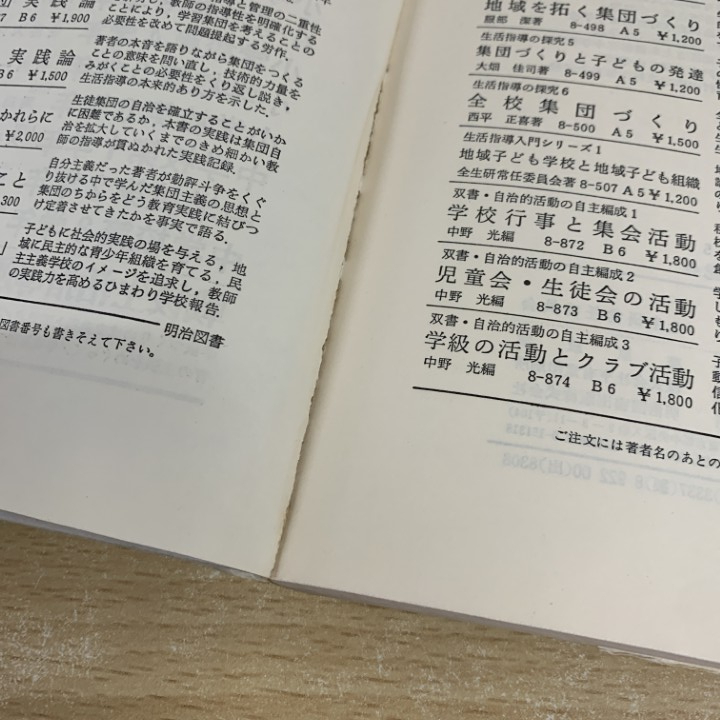 実践論
B6 ¥1,900
導と管理の二重性
教師の指導性を明確化する
ことにより,学習集団を考えることの
必要性を改めて問題提起する労作.
実践論
B6 ¥1,500
著者の本音を語りながら集団をつくる
ことの意味を問い直し,技術的力量を
みがくことの必要性をくり返し説き,
生活指導の本来的あり方を示した.
かれらに
¥2,000
生徒集団の自治を確立することがいか
に困難であるか.本書の実践は集団自
治を拡大していくまでのきめ細かい教
師の指導が貫ぬかれた実践記録.
こと
300
自分主義だった著者が勤評斗争をくぐ
り抜ける中で学んだ集団主義の思想と
集団のちからをどう教育実践に結びつ
け定着させてきたかを事実で語る.
」
子どもに社会的実践の場を与える,地
域に民主的な青少年組織を育てる,民
主主義学校のイメージを追求し,教師
の実践力を高めるひまわり学校報告.
明治図書
図書番号も書きそえて下さい。
地域を拓く集団づくり
服部 潔著 8-498 A5 ¥1,200
生活指導の探究5
集団づくりと子どもの発達
大畑 佳司著 8-499 A5 ¥1,200
生活指導の探究6
全校集団づくり
西平 正喜著 8-500 A5 ¥1,500
生活指導入門シリーズ1
地域子ども学校と地域子ども組織
全生研常任委員会著 8-507 A5 ¥1,200
双書・自治的活動の自主編成1
学校行事と集会活動
中野 光編 8-872 B6 ¥1,800
双書・自治的活動の自主編成2
児童会・生徒会の活動
中野 光編 8-873 B6 ¥1,800
双書・自治的活動の自主編成3
学級の活動とクラブ活動
中野 光編 8-874 B6 ¥1,800
ご注文には著者名のあとの